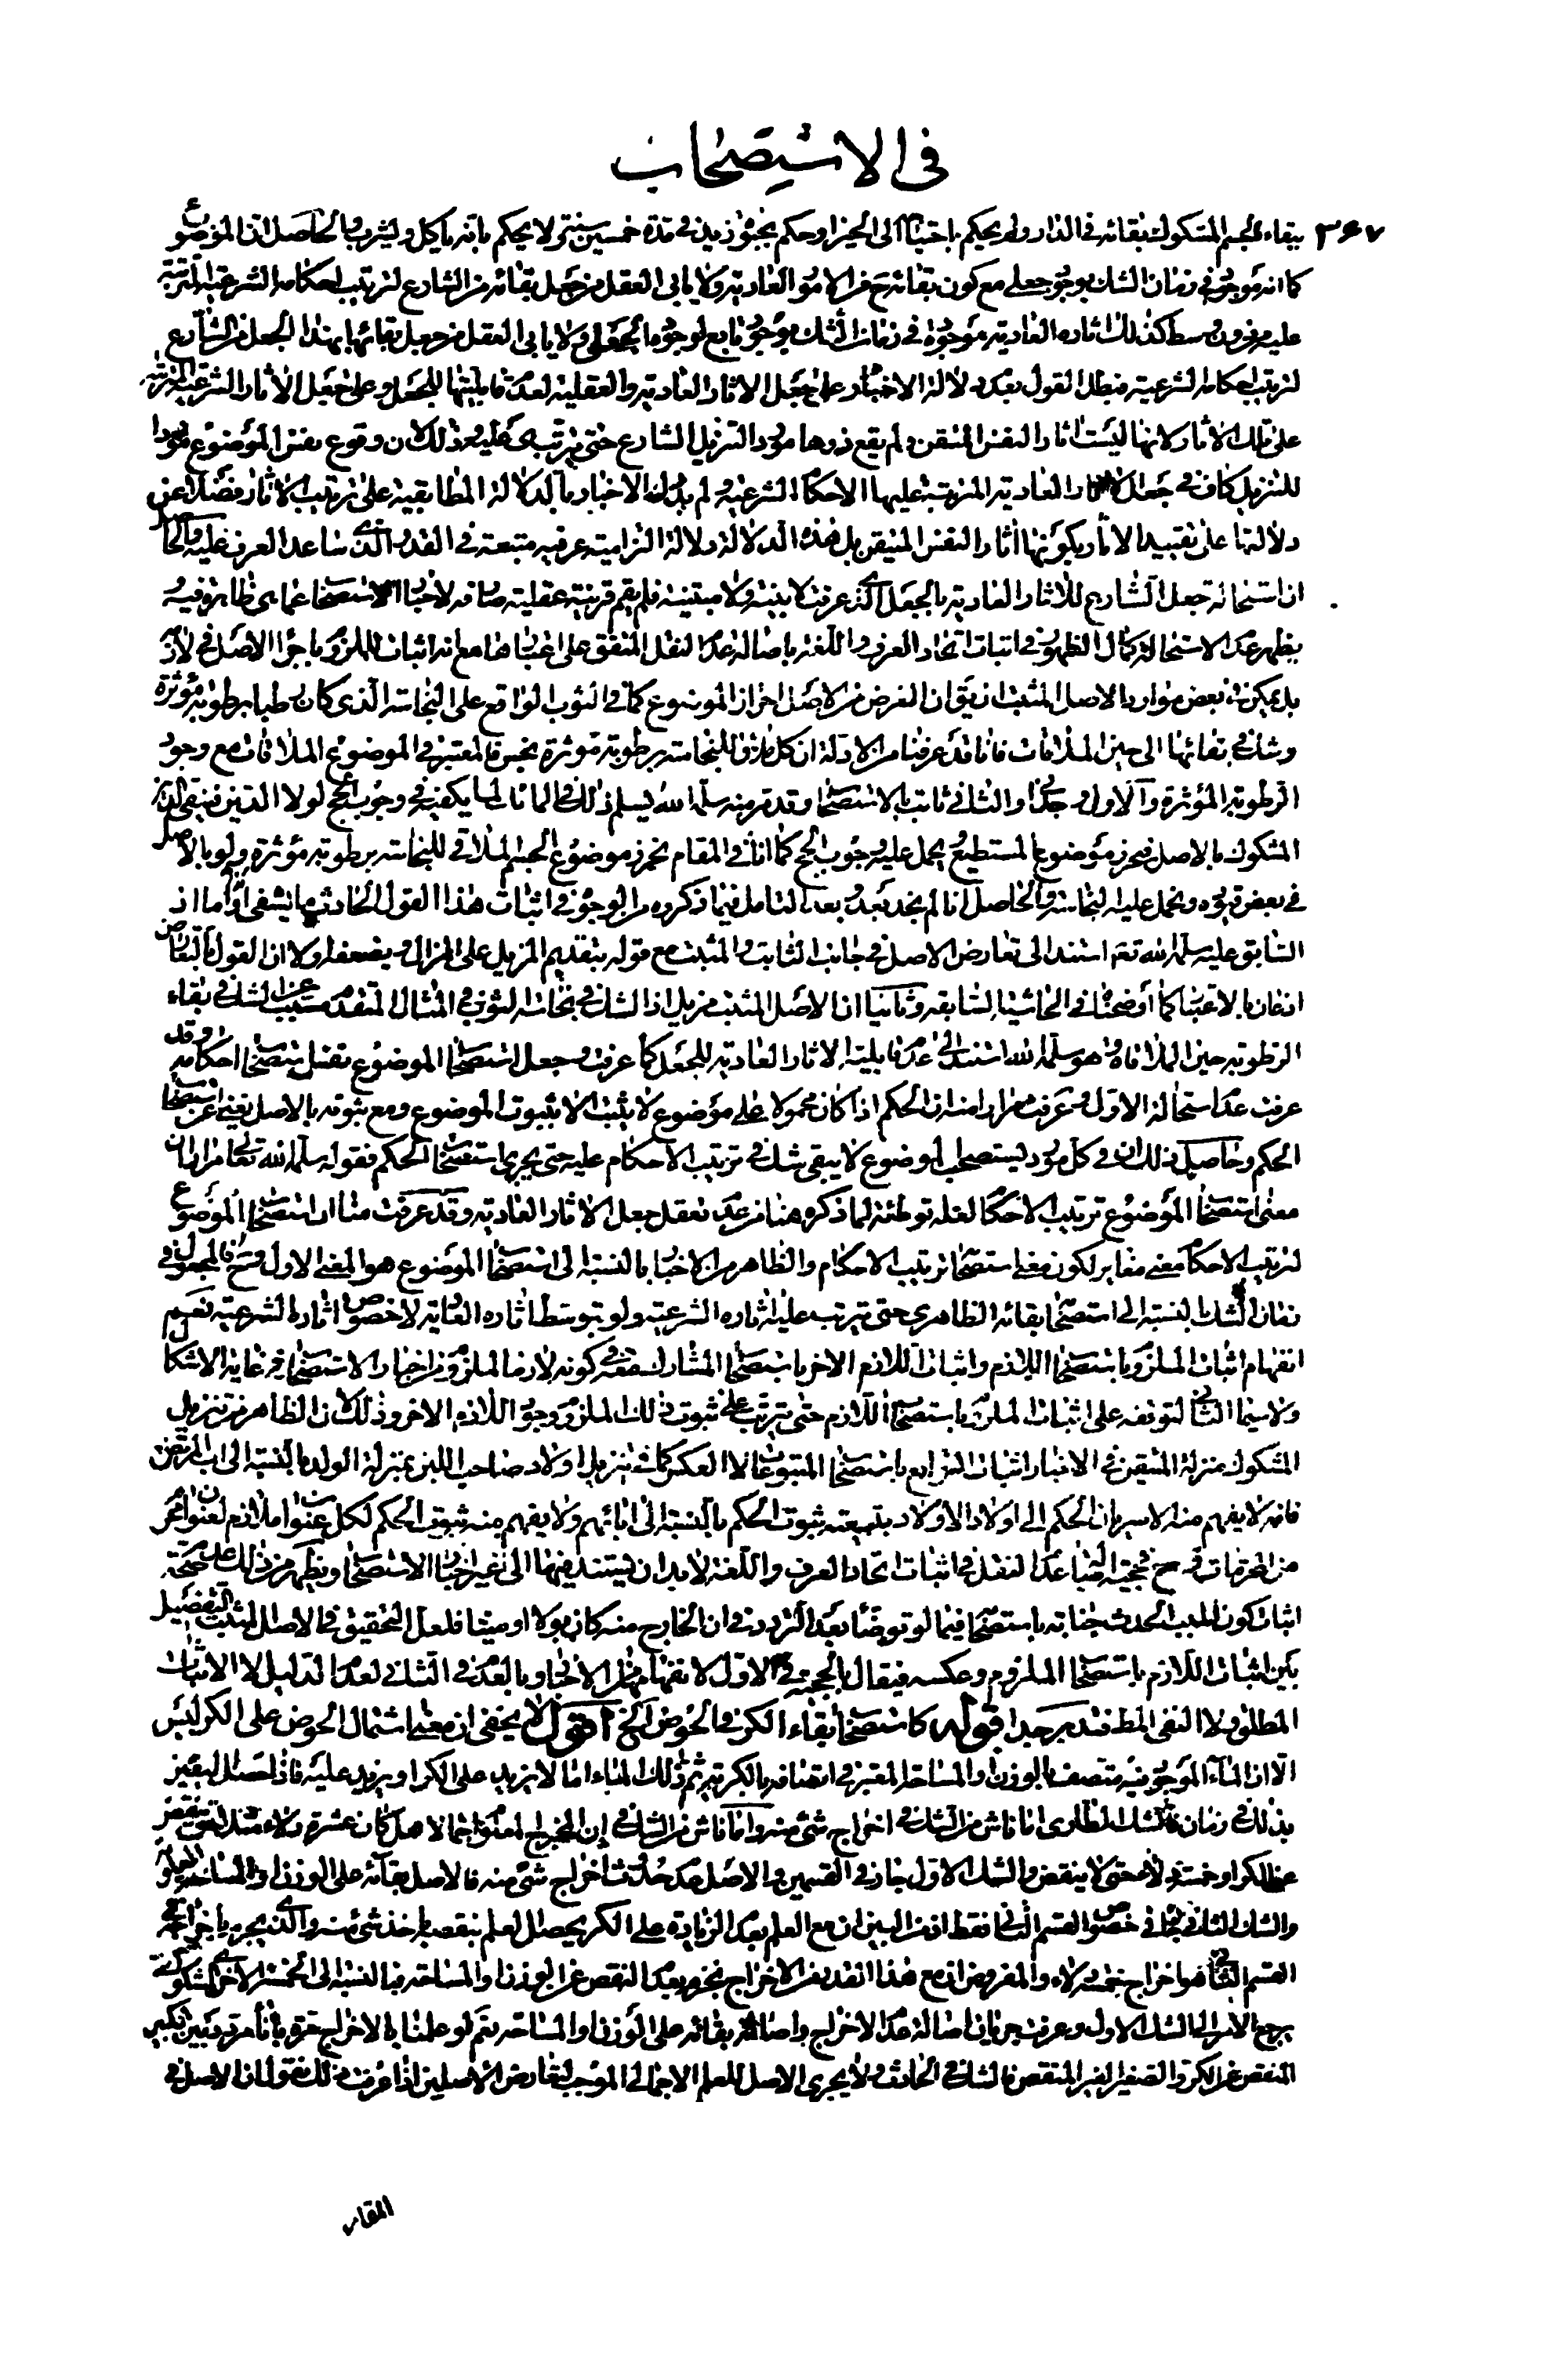 في الاستصحاب
٣٤٧ ببقاء الجسم المشكوك بقائه في الدار ولم يحكم باحتياجه الى الحيز او حكم بحيوة زيد في مدة خمسين سنة ولا يحكم بانه ياكل ويشرب والحاصل ان الموضوع
كما انه موجود في زمان الشك بوجود جعلي مع كون بقائه ح من الامور العادية ولا يابى العقل من جعل بقائه من الشارع لترتيب احكامه الشرعية المترتبة
عليه من دون وسط كذلك اثاره العادية موجودة في زمان الشك بوجود تابع لوجوده الجعلي ولا يابى العقل من جعل بقائها بهذا الجعل من الشارع
لترتيب احكامه الشرعية فبطل القول بعدم دلالة الاخبار على جعل الاثار العادية والعقلية لعدم قابليتها للجعل وعلى جعل الاثار الشرعية المترتبة
على تلك الاثار لانها ليست اثار النفس المتيقن ولم يقع ذوها موردا لتنزيل الشارع حتى يترتب هي عليه وذلك لان وقوع نفس الموضوع موردا
للتنزيل كاف في جعل الاثار العادية المترتبة عليها الاحكام الشرعية ولم يدل الاخبار بالدلالة المطابقية على ترتيب الاثار فضلا عن
دلالتها على تقييد الاثار بكونها اثار النفس المتيقن بل هذه الدلالة دلالة التزامية عرفية متبعة في القدر الذي ساعد العرف عليه والحاصل
ان استحالة جعل الشارع للاثار العادية بالجعل الذي عرفت لا بينة ولا مبينة فلم يقم قرينة عقلية صارفة لاخبار الاستصحاب عما هي ظاهرة فيه
يظهر عدم الاستحالة كمال الظهور في اثبات اتحاد العرف واللغة باصالة عدم النقل المتفق على اعتبارها مع انه اثبات للملزوم باجراء الاصل في لازمه
بل يمكن في بعض موارد الاصل المثبت ان يق ان الغرض من الاصل احراز الموضوع كما في الثوب الواقع على النجاسة الذي كان رطبا برطوبة مؤثرة
وشك في بقائها الى حين الملاقات فانا قد عرفنا من الادلة ان كل ملاق للنجاسة برطوبة مؤثرة نجس فالمعتبر في الموضوع الملاقات مع وجود
الرطوبة المؤثرة والاول وجداني والثاني ثابت بالاستصحاب وقد مر منه سلمه الله تسليم ذلك في المال يكفيه في وجوب الحج لولا الدين فينفي الدين
المشكوك بالاصل فيحرز موضوع المستطيع يحمل عليه وجوب الحج كما انا في المقام نحرز موضوع الجسم الملاقي للنجاسة برطوبة مؤثرة ولو بالاصل
في بعض قيوده ونحمل عليه النجاسة والحاصل انا لم نجد بعد بعد التامل فيما ذكروه من الوجوه في اثبات هذا القول الحادث ما يشفي اواما اذ
السابق عليه سلمه الله تعه استند الى تعارض الاصل في جانب الثابت والمثبت مع قوله بتقديم المزيل على المزال ويضعفه اولا ان القول بالتعارض
اذعان بالاعتبار كما اوضحناه في الحاشية السابقة وثانيا ان الاصل المثبت مزيل اذ الشك في نجاسة الثوب في المثال المتقدم مسبب عن الشك في بقاء
الرطوبة حين الملاقاة وهو سلمه الله استند الى عدم قابلية الاثار العادية للجعل كما عرفت وجعل استصحاب الموضوع نفس استصحاب احكامه وقد
عرفت عدم استحالة الاول وعرفت مرارا منا ان الحكم اذا كان محمولا على موضوع لا يثبت الا بثبوت الموضوع ومع ثبوته بالاصل يغني عن استصحاب
الحكم وحاصل ذلك ان في كل مورد يستصحب الموضوع لا يبقى شك في ترتيب الاحكام عليه حتى يجرى استصحاب الحكم فقوله سلمه الله تعالى مرارا ان
معنى استصحاب الموضوع ترتيب الاحكام لعله توطئة لما ذكره هنا من عدم تعقل جعل الاثار العادية وقد عرفت منا ان استصحاب الموضوع
لترتيب الاحكام معنى مغاير لكون معنى استصحابه ترتيب الاحكام والظاهر من الاخبار بالنسبة الى استصحاب الموضوع هو المعنى الاول وح فالمجعول في
زمان الشك بالنسبة الى استصحابه بقائه الظاهري حتى يترتب عليه اثاره الشرعية ولو بتوسط اثاره العادية لا خصوص اثاره الشرعية نعم
انفهام اثبات الملزوم باستصحاب اللازم واثبات اللازم الاخر باستصحاب المشارك معه في كونه لازما للملزوم من اخبار الاستصحاب في غاية الاشكال
ولا سيما الثاني لتوقفه على اثبات الملزوم باستصحاب اللازم حتى يترتب على ثبوت ذلك الملزوم وجود اللازم الاخر وذلك لان الظاهر من تنزيل
المشكوك بمنزلة المتيقن في الاخبار اثبات التوابع باستصحاب المتبوعات لا العكس كما في تنزيل اولاد صاحب اللبن بمنزلة الولد بالنسبة الى اب المرتضع
فانه لا يفهم منه الا سريان الحكم الى اولاد الاولاد بتبعية ثبوت الحكم بالنسبة الى ابائهم ولا يفهم منه ثبوت الحكم لكل عنوان ملازم لعنوان محرم
من المحرمات وح في حجية اصالة عدم النقل في اثبات اتحاد العرف واللغة لا بد ان يستند فيها الى غير اخبار الاستصحاب ويظهر من ذلك عدم صحة
اثبات كون البلل الحدث جنابة باستصحابها فيما لو توضأ بعد التردد في ان الخارج منه كان بولا او منيا فلعل التحقيق في الاصل المثبت التفصيل
بين اثبات اللازم باستصحاب الملزوم وعكسه فيقال بالحجية في الاول لانفهامه من الاخبار وبالعدم في الثاني لعدم الدليل لا الاثبات
المطلق ولا النفي المط فتدبر جدا قوله كاستصحاب بقاء الكر في الحوض الخ اقول لا يخفى ان معنى اشتمال الحوض على الكر ليس
الا ان الماء الموجود فيه متصف بالوزن او المساحة المعتبر في اتصافه بالكرية ثم ذلك الماء اما لا يزيد على الكر او يزيد عليه فاذا حصل اليقين
بذلك في زمان فالشك الطاري اما ناش من الشك في اخراج شئ منه واما ناش من الشك في ان المخرج المعلوم اجمالا هل كان عشرة دلاء مثلا حتى ينقص
عن الكر او خمسة دلاء حتى لا ينقض والشك الاول جار في القسمين والاصل عدم حدوث اخراج شئ منه فالاصل بقائه على الوزن او المساحة
والشك الثاني في خصوص القسم الثاني فقط اذ من البين ان مع العلم بعدم الزيادة على الكر يحصل العلم بنقصه باخذ شئ منه والذي يجزم باخراجه في
القسم الثاني هو اخراج خمسة دلاء والمفروض ان مع هذا القدر من الاخراج نجزم بعدم النقص عن الوزن والمساحة فبالنسبة الى الخمسة الاخرى المشكوكة
يرجع الامر الى الشك الاول وعرفت جريان اصالة عدم الاخراج واصالة بقائه على الوزن والمساحة نعم لو علمنا بالاخراج مرة بانا مردد بين الكبير
المنقص عن الكر والصغير الغير المنقص فالشك في الحادث ولا يجرى الاصل للعلم الاجمالي الموجب لتعارض الاصلين اذا عرفت ذلك فنقول ان الاصل في
المقام